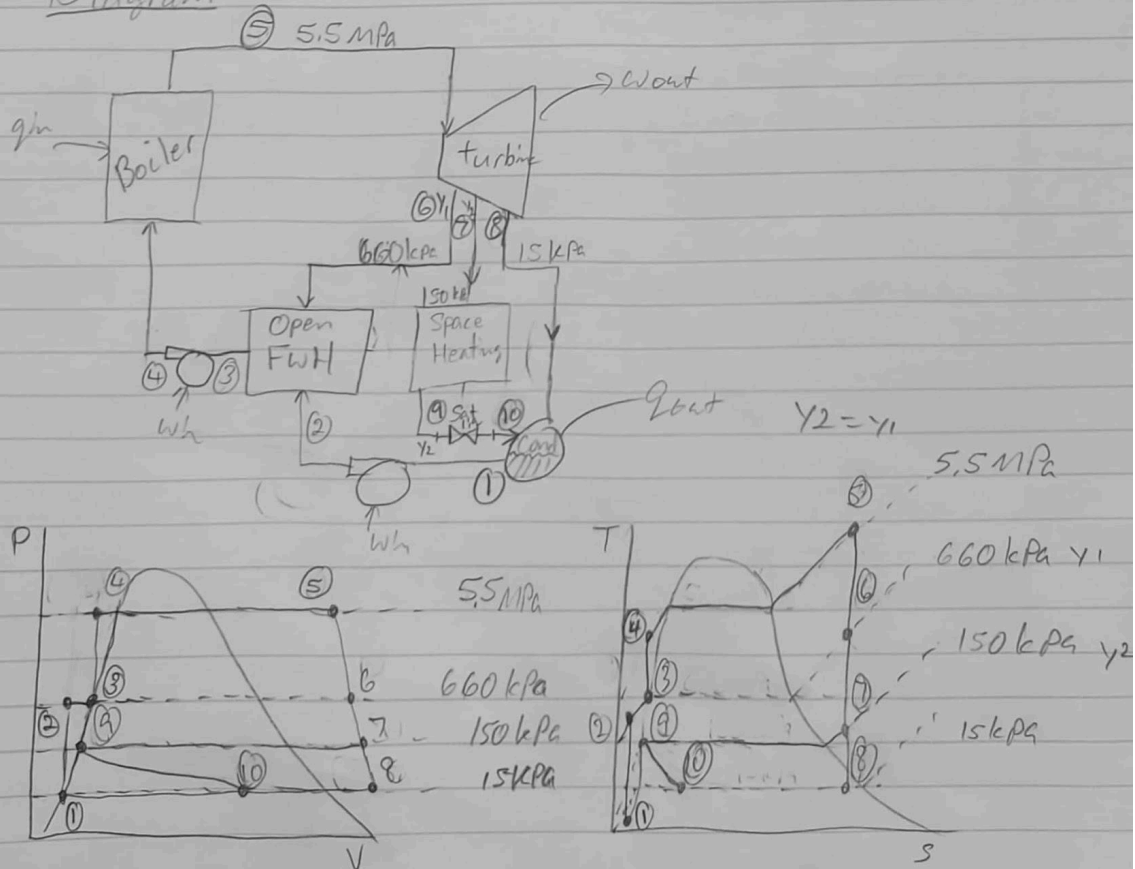 Diagram
⑤ 5.5 MPa
wout
qin
Boiler
turbine
⑥ y1 ⑦ ⑧
660 kPa
15 kPa
150 kPa
Open
FWH
Space
Heating
④ ③
Wh
②
⑨ Sat ⑩
y2
Cond
qout
Y2 = Y1
①
Wh
P
④ ⑤ 5.5 MPa
② ③ 6 660 kPa
⑨ 7 150 kPa
⑩ 8 15 kPa
①
V
T
5.5 MPa
660 kPa y1
⑥
④
150 kPa y2
③ ⑦
② ⑨
15 kPa
⑩ ⑧
①
S